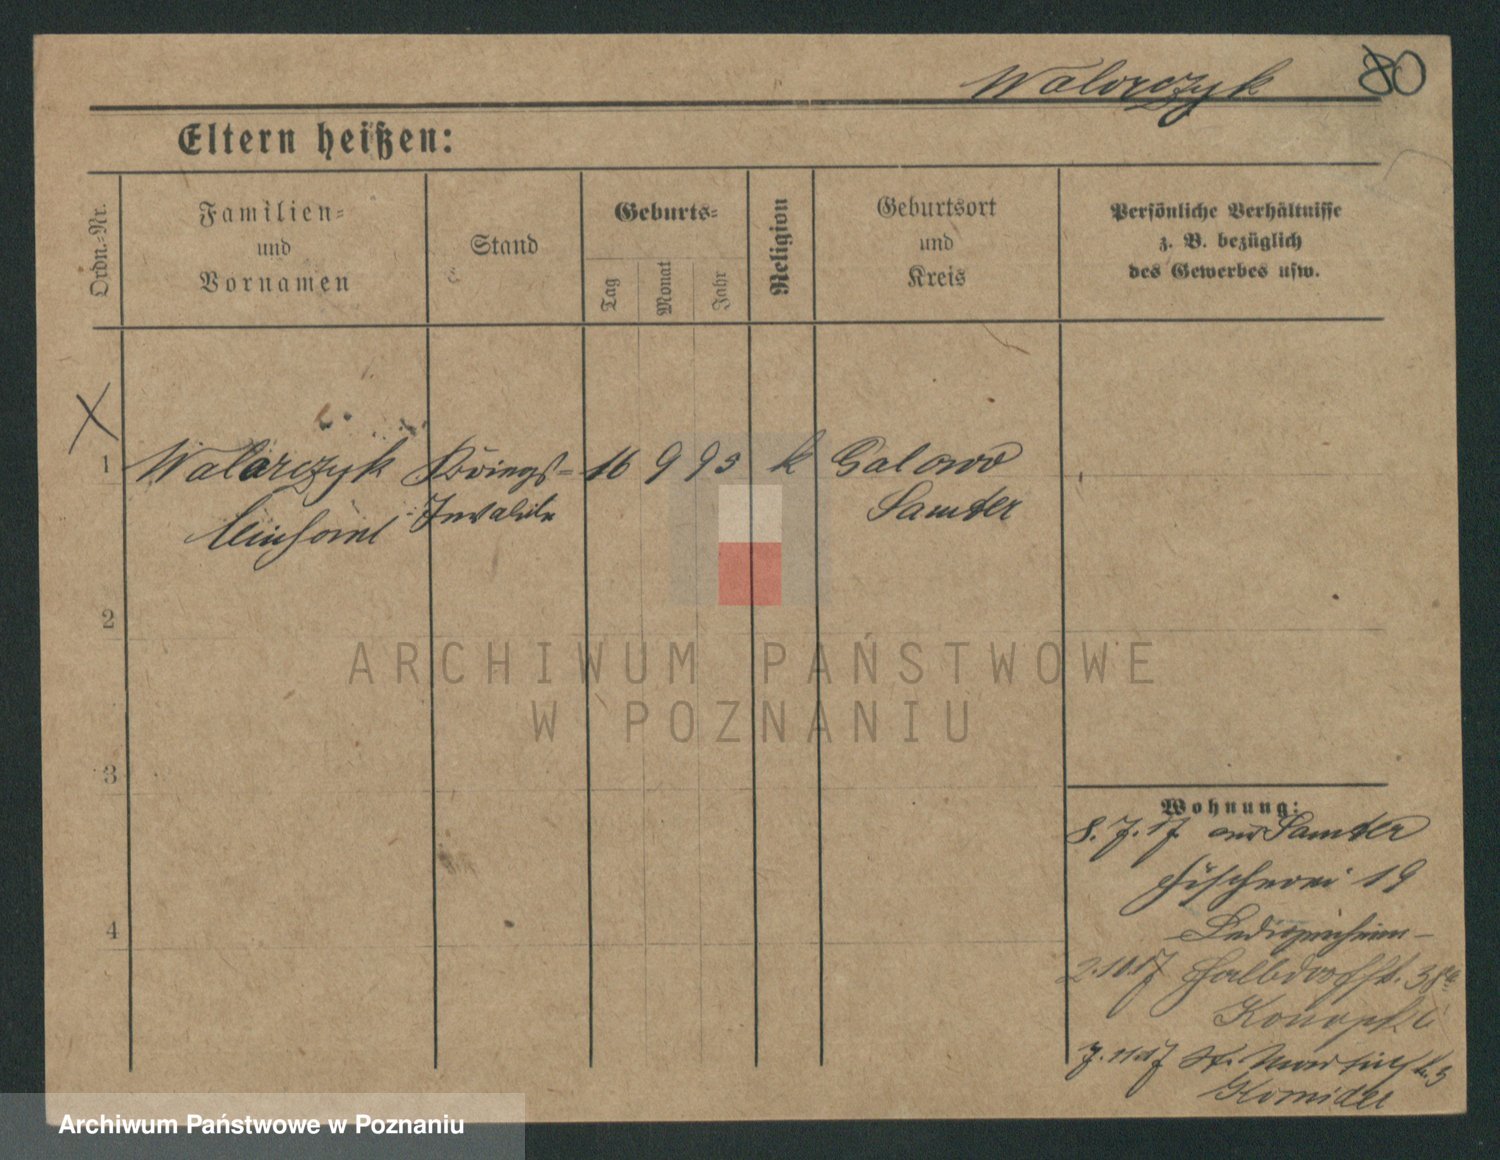 Walorczyk 80
Eltern heißen:
Ordn.-Nr.
Familien-
und
Vornamen
Stand
Geburts-
Tag
Monat
Jahr
Religion
Geburtsort
und
Kreis
Persönliche Verhältnisse
z. B. bezüglich
des Gewerbes usw.
1 Walorczyk Kriegs- 16 9 95 k Galowo
Invalide Samter
2
3
4
Wohnung:
8. 7. 17. aus Samter
Fischerei 19
2.10.17 Halbdorfstr. 38a
7. 11.17 St. Martinstr.
ARCHIWUM PAŃSTWOWE
W POZNANIU
Archiwum Państwowe w Poznaniu